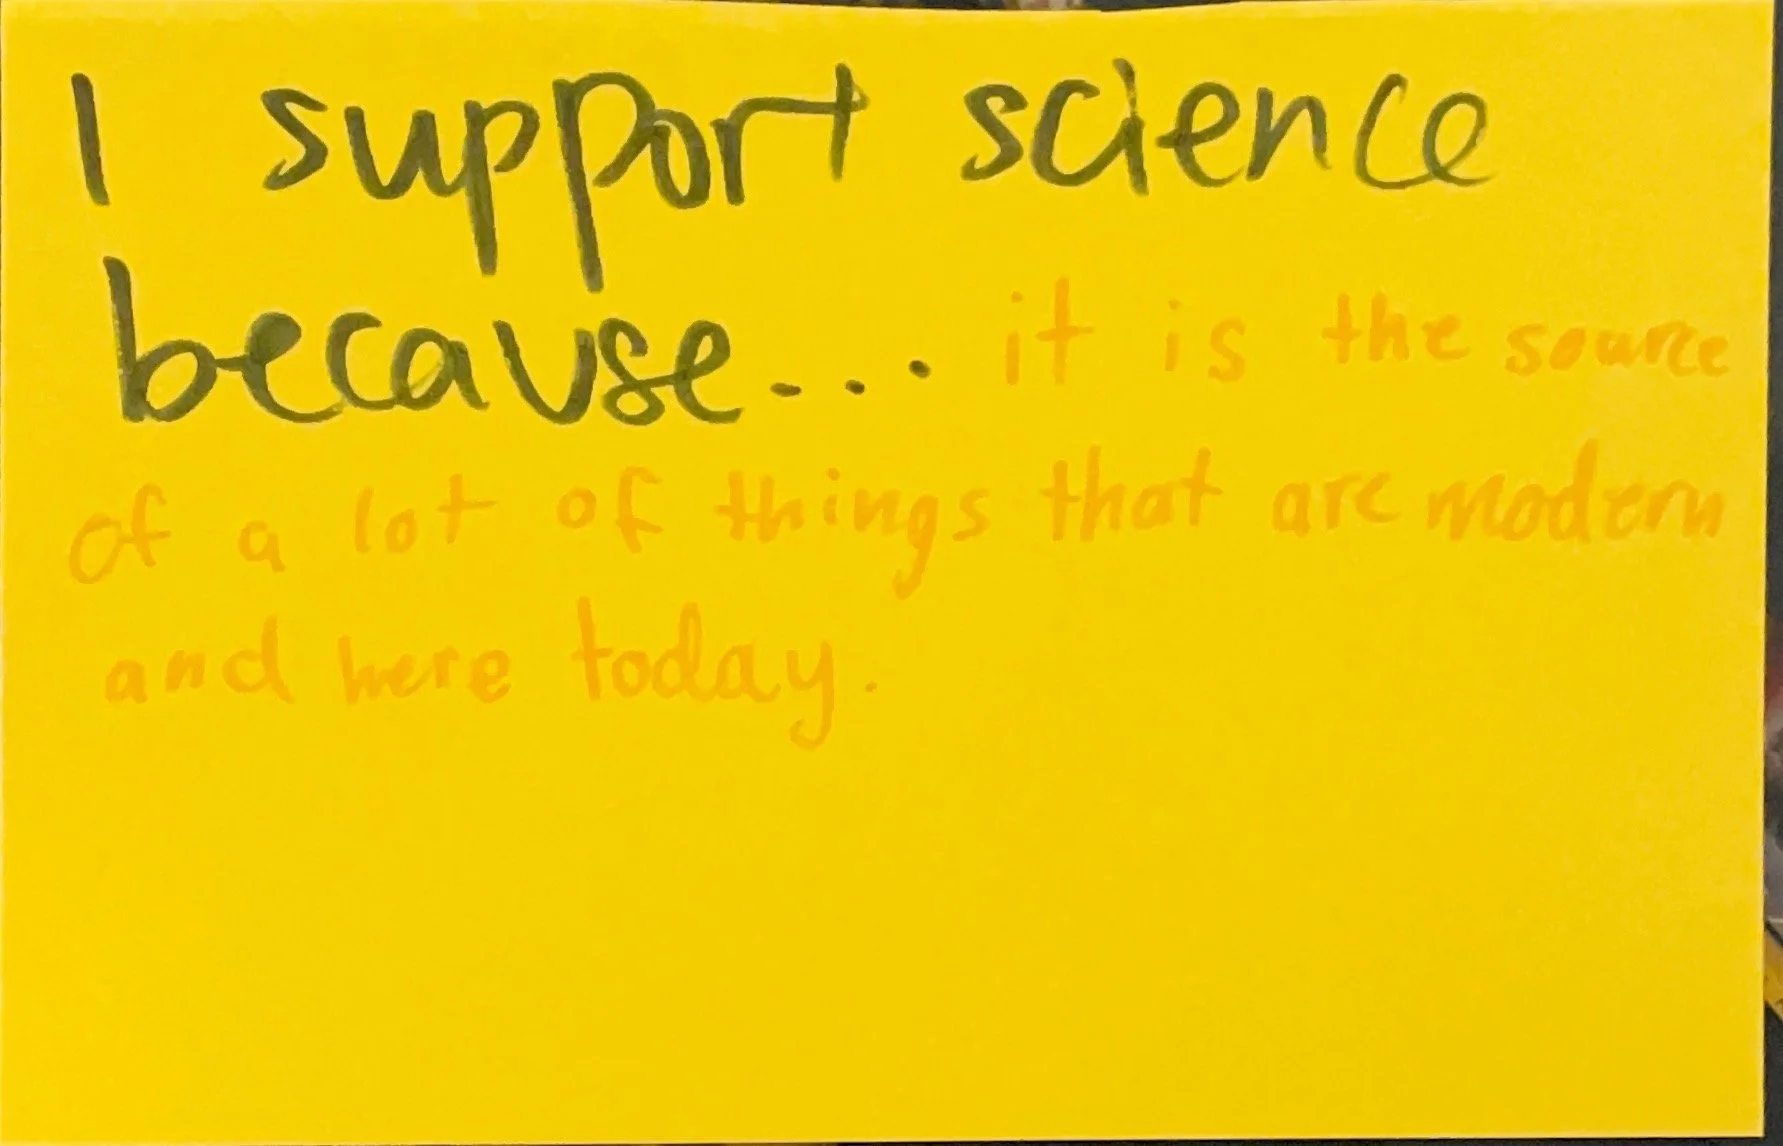 I support science
because... it is the source
of a lot of things that are modern
and here today.